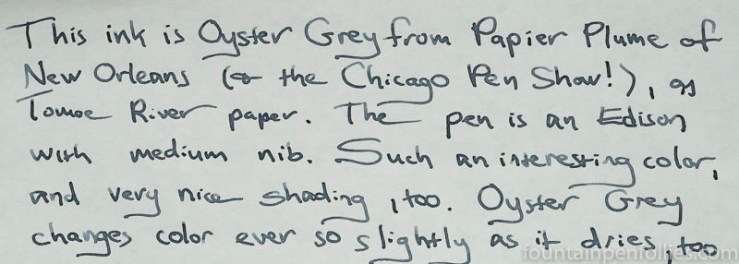 This ink is Oyster Grey from Papier Plume of
New Orleans (& the Chicago Pen Show!), on
Tomoe River paper. The pen is an Edison
with medium nib. Such an interesting color,
and very nice shading, too. Oyster Grey
changes color ever so slightly as it dries, too
fountainpenfollies.com